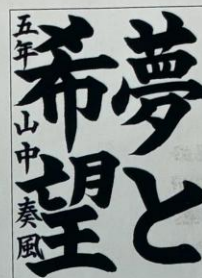 夢と
希望
五年 山中奏風